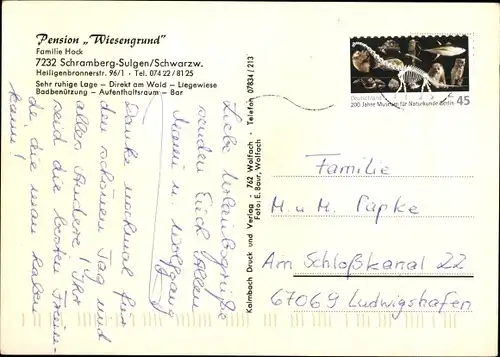 Pension „Wiesengrund"
Familie Hock
7232 Schramberg-Sulgen/Schwarzw.
Heiligenbronnerstr. 96/1 · Tel. 074 22 / 81 25
Sehr ruhige Lage — Direkt am Wald — Liegewiese
Badbenützung — Aufenthaltsraum — Bar
Liebe Urlaubsgrüße
senden Euch Allen
Manu u. Wolfgang
Danke nochmal für
den schönen Tag und
alles Andere! Ihr
seid die besten Freun-
de, die man haben
kann!
Kolmbach Druck und Verlag · 762 Wolfach · Telefon 07834/213
Foto: E. Baur, Wolfach
Deutschland
200 Jahre Museum für Naturkunde Berlin
45
Familie
M. u. M. Papke
Am Schloßkanal 22
67069 Ludwigshafen